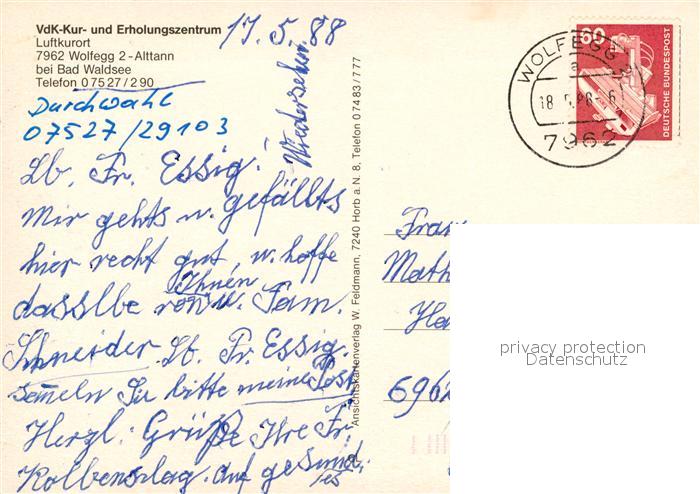 VdK-Kur- und Erholungszentrum
Luftkurort
7962 Wolfegg 2-Alttann
bei Bad Waldsee
Telefon 07527/290
17.5.88
Durchwahl
07527/29103
Lb. Fr. Essig!
Mir gehts u. gefällts
hier recht gut, u. hoffe
dasslbe von Ihnen u. Fam.
Schneider. Lb. Fr. Essig.
sameln Sie bitte meine Post
Herzl. Grüße Ihre Fr.
Kolbenschlag. auf gesundes
Wiedersehen
Ansichtskartenverlag W. Feldmann, 7240 Horb a.N. 8, Telefon 07483/777
60
DEUTSCHE BUNDESPOST
WOLFEGG
a
18.5.88-6
7962
Frau
Math
Ha
6962
privacy protection
Datenschutz